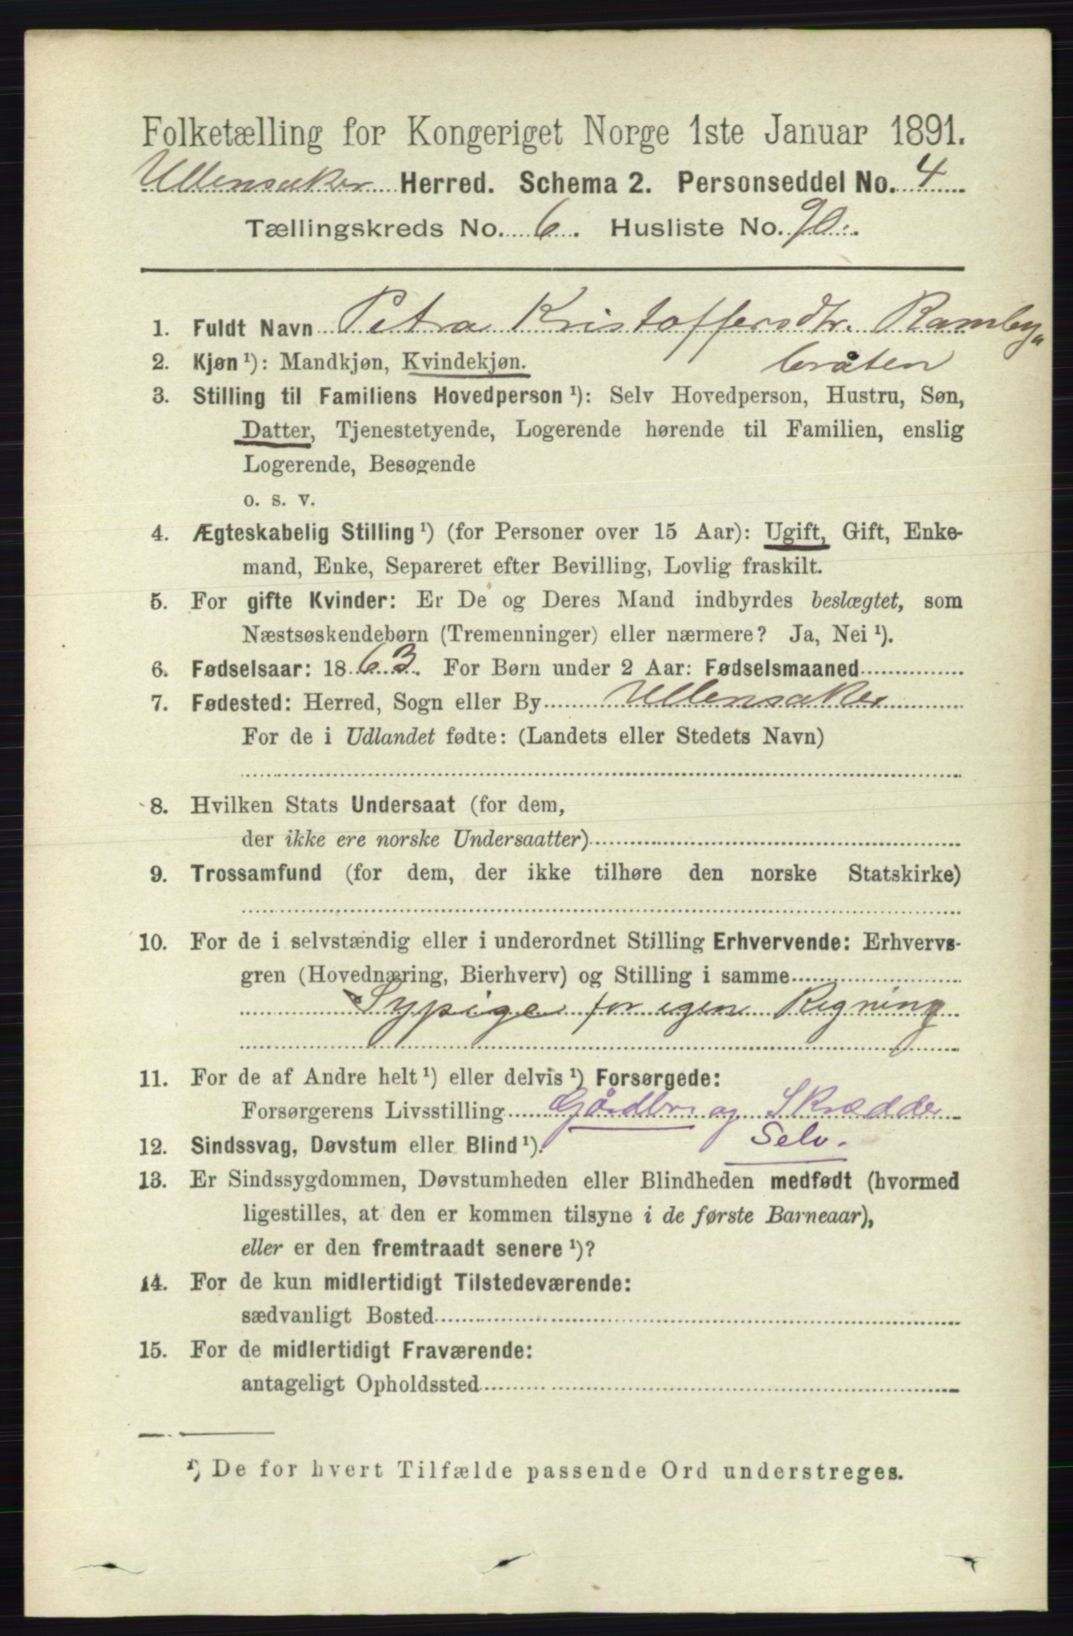 Folketælling for Kongeriget Norge 1ste Januar 1891.
Ullensaker Herred. Schema 2. Personseddel No. 4
Tællingskreds No. 6. Husliste No. 90.
1. Fuldt Navn Petra Kristoffersdtr. Ramby-
bråten
2. Kjøn ¹): Mandkjøn, Kvindekjøn.
3. Stilling til Familiens Hovedperson ¹): Selv Hovedperson, Hustru, Søn,
Datter, Tjenestetyende, Logerende hørende til Familien, enslig
Logerende, Besøgende
o. s. v.
4. Ægteskabelig Stilling ¹) (for Personer over 15 Aar): Ugift, Gift, Enke-
mand, Enke, Separeret efter Bevilling, Lovlig fraskilt.
5. For gifte Kvinder: Er De og Deres Mand indbyrdes beslægtet, som
Næstsøskendebørn (Tremenninger) eller nærmere? Ja, Nei ¹).
6. Fødselsaar: 1863. For Børn under 2 Aar: Fødselsmaaned
7. Fødested: Herred, Sogn eller By Ullensaker
For de i Udlandet fødte: (Landets eller Stedets Navn)
8. Hvilken Stats Undersaat (for dem,
der ikke ere norske Undersaatter)
9. Trossamfund (for dem, der ikke tilhøre den norske Statskirke)
10. For de i selvstændig eller i underordnet Stilling Erhvervende: Erhvervs-
gren (Hovednæring, Bierhverv) og Stilling i samme
Sypige for egen Regning
11. For de af Andre helt ¹) eller delvis ¹) Forsørgede:
Forsørgerens Livsstilling Gårdbr. og Skrædder
Selv.
12. Sindssvag, Døvstum eller Blind ¹).
13. Er Sindssygdommen, Døvstumheden eller Blindheden medfødt (hvormed
ligestilles, at den er kommen tilsyne i de første Barneaar),
eller er den fremtraadt senere ¹)?
14. For de kun midlertidigt Tilstedeværende:
sædvanligt Bosted
15. For de midlertidigt Fraværende:
antageligt Opholdssted
¹) De for hvert Tilfælde passende Ord understreges.